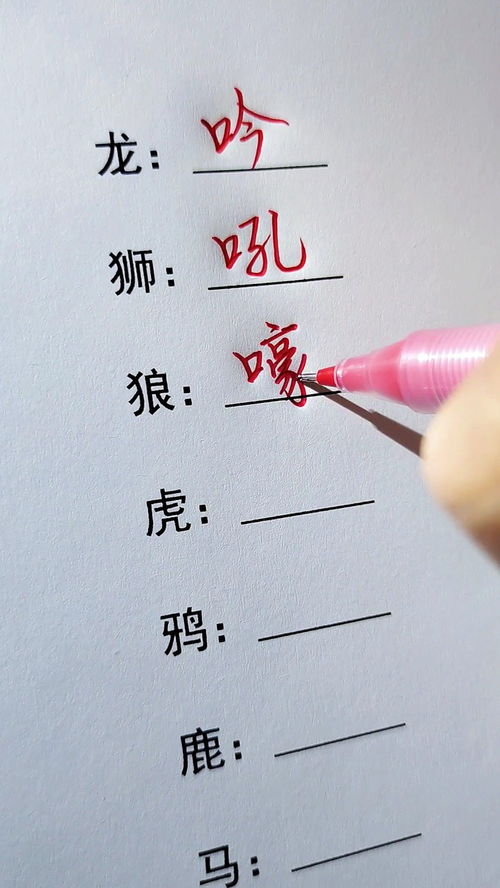 龙：吟
狮：吼
狼：嚎
虎：
鸦：
鹿：
马：